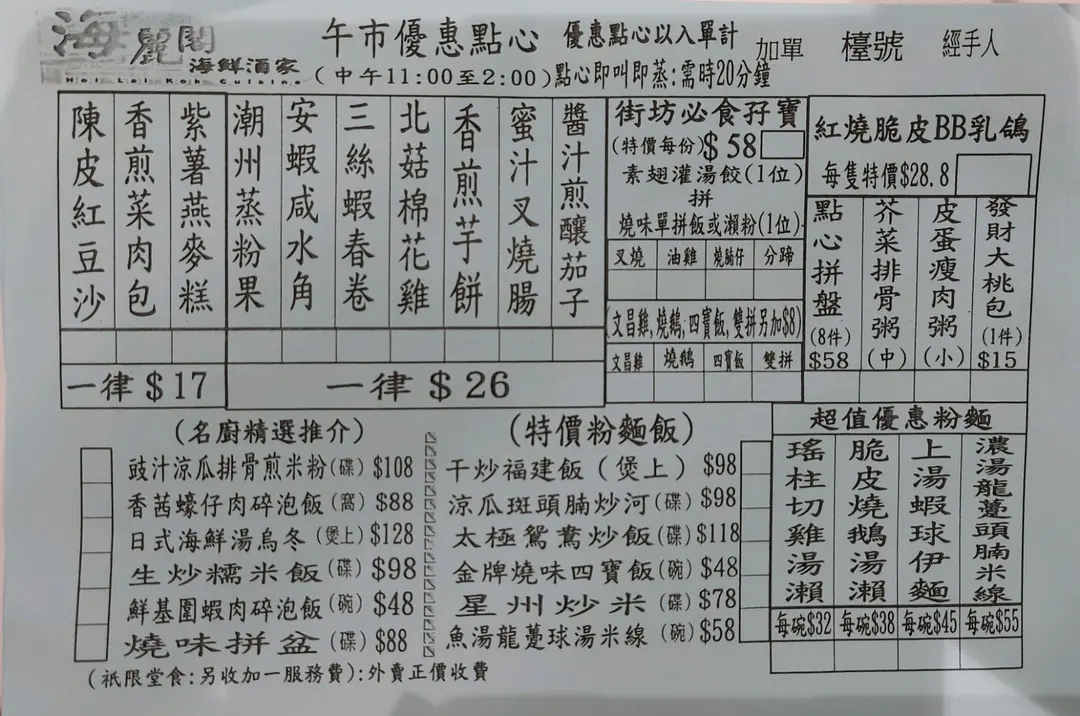 海麗閣
海鮮酒家
Hoi Lai Kok Cuisine
午市優惠點心
優惠點心以入單計
加單
檯號
經手人
(中午11:00至2:00)點心即叫即蒸:需時20分鐘
陳皮紅豆沙
香煎菜肉包
紫薯燕麥糕
一律$17
潮州蒸粉果
安蝦咸水角
三絲蝦春卷
北菇棉花雞
香煎芋餅
蜜汁叉燒腸
醬汁煎釀茄子
一律$26
街坊必食孖寶
(特價每份)$58
素翅灌湯餃(1位)
拼
燒味單拼飯或瀨粉(1位)
叉燒 油雞 燒腩仔 分蹄
(文昌雞,燒鵝,四寶飯,雙拼另加$8)
文昌雞 燒鵝 四寶飯 雙拼
紅燒脆皮BB乳鴿
每隻特價$28.8
點心拼盤(8件)$58
芥菜排骨粥(中)
皮蛋瘦肉粥(小)
發財大桃包(1件)$15
(名廚精選推介)
豉汁涼瓜排骨煎米粉(碟)$108
香茜蠔仔肉碎泡飯(窩)$88
日式海鮮湯烏冬(煲上)$128
生炒糯米飯(碟)$98
鮮基圍蝦肉碎泡飯(碗)$48
燒味拼盆(碟)$88
(特價粉麵飯)
干炒福建飯(煲上)$98
涼瓜斑頭腩炒河(碟)$98
太極鴛鴦炒飯(碟)$118
金牌燒味四寶飯(碗)$48
星州炒米(碟)$78
魚湯龍躉球湯米線(碗)$58
超值優惠粉麵
瑤柱切雞湯瀨
每碗$32
脆皮燒鵝湯瀨
每碗$38
上湯蝦球伊麵
每碗$45
濃湯龍躉頭腩米線
每碗$55
(祇限堂食:另收加一服務費):外賣正價收費